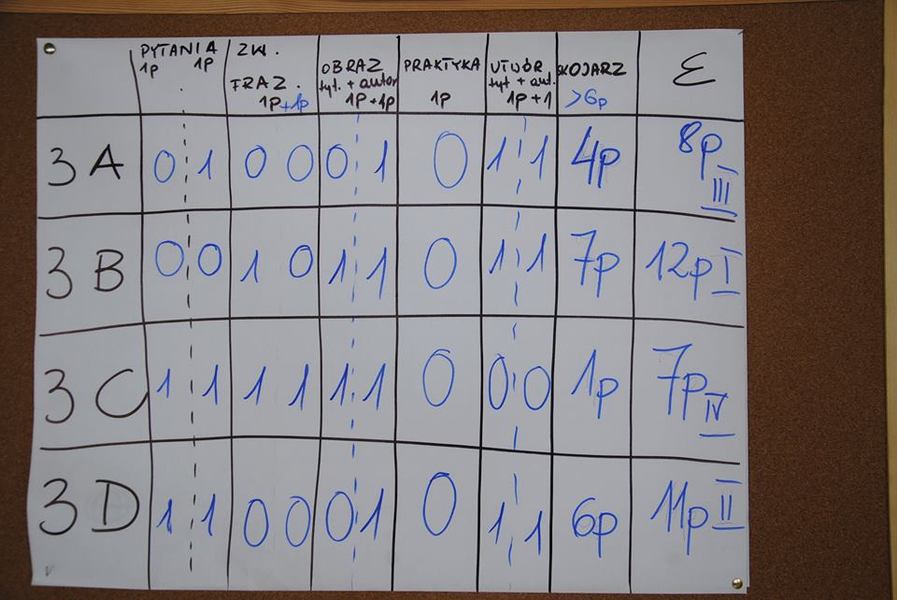 PYTANIA ZW. OBRAZ PRAKTYKA UTWÓR SKOJARZ Σ
1p 1p FRAZ. tyt. + autor 1p tyt + aut. >6p
1p+1p 1p+1p 1p+1
3A 0 1 0 0 0 1 0 1 1 4p 8p III
3B 0 0 1 0 1 1 0 1 1 7p 12p I
3C 1 1 1 1 1 1 0 0 0 1p 7p IV
3D 1 1 0 0 0 1 0 1 1 6p 11p II